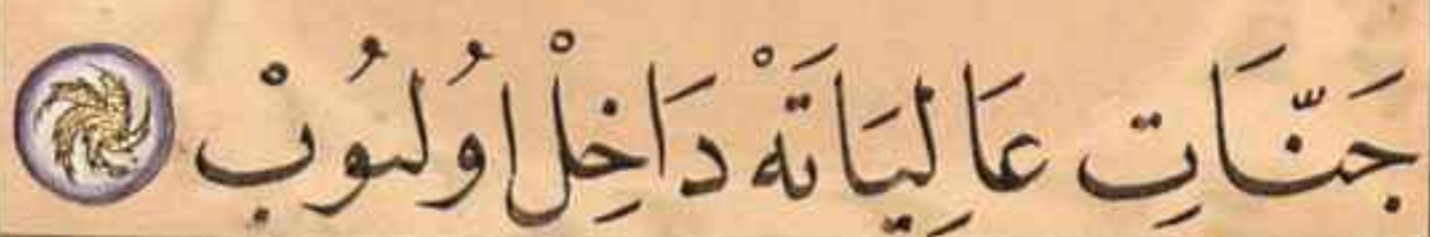 جَنَّاتِ عَالِيَاتَهْ دَاخِلْ اُولُوبْ